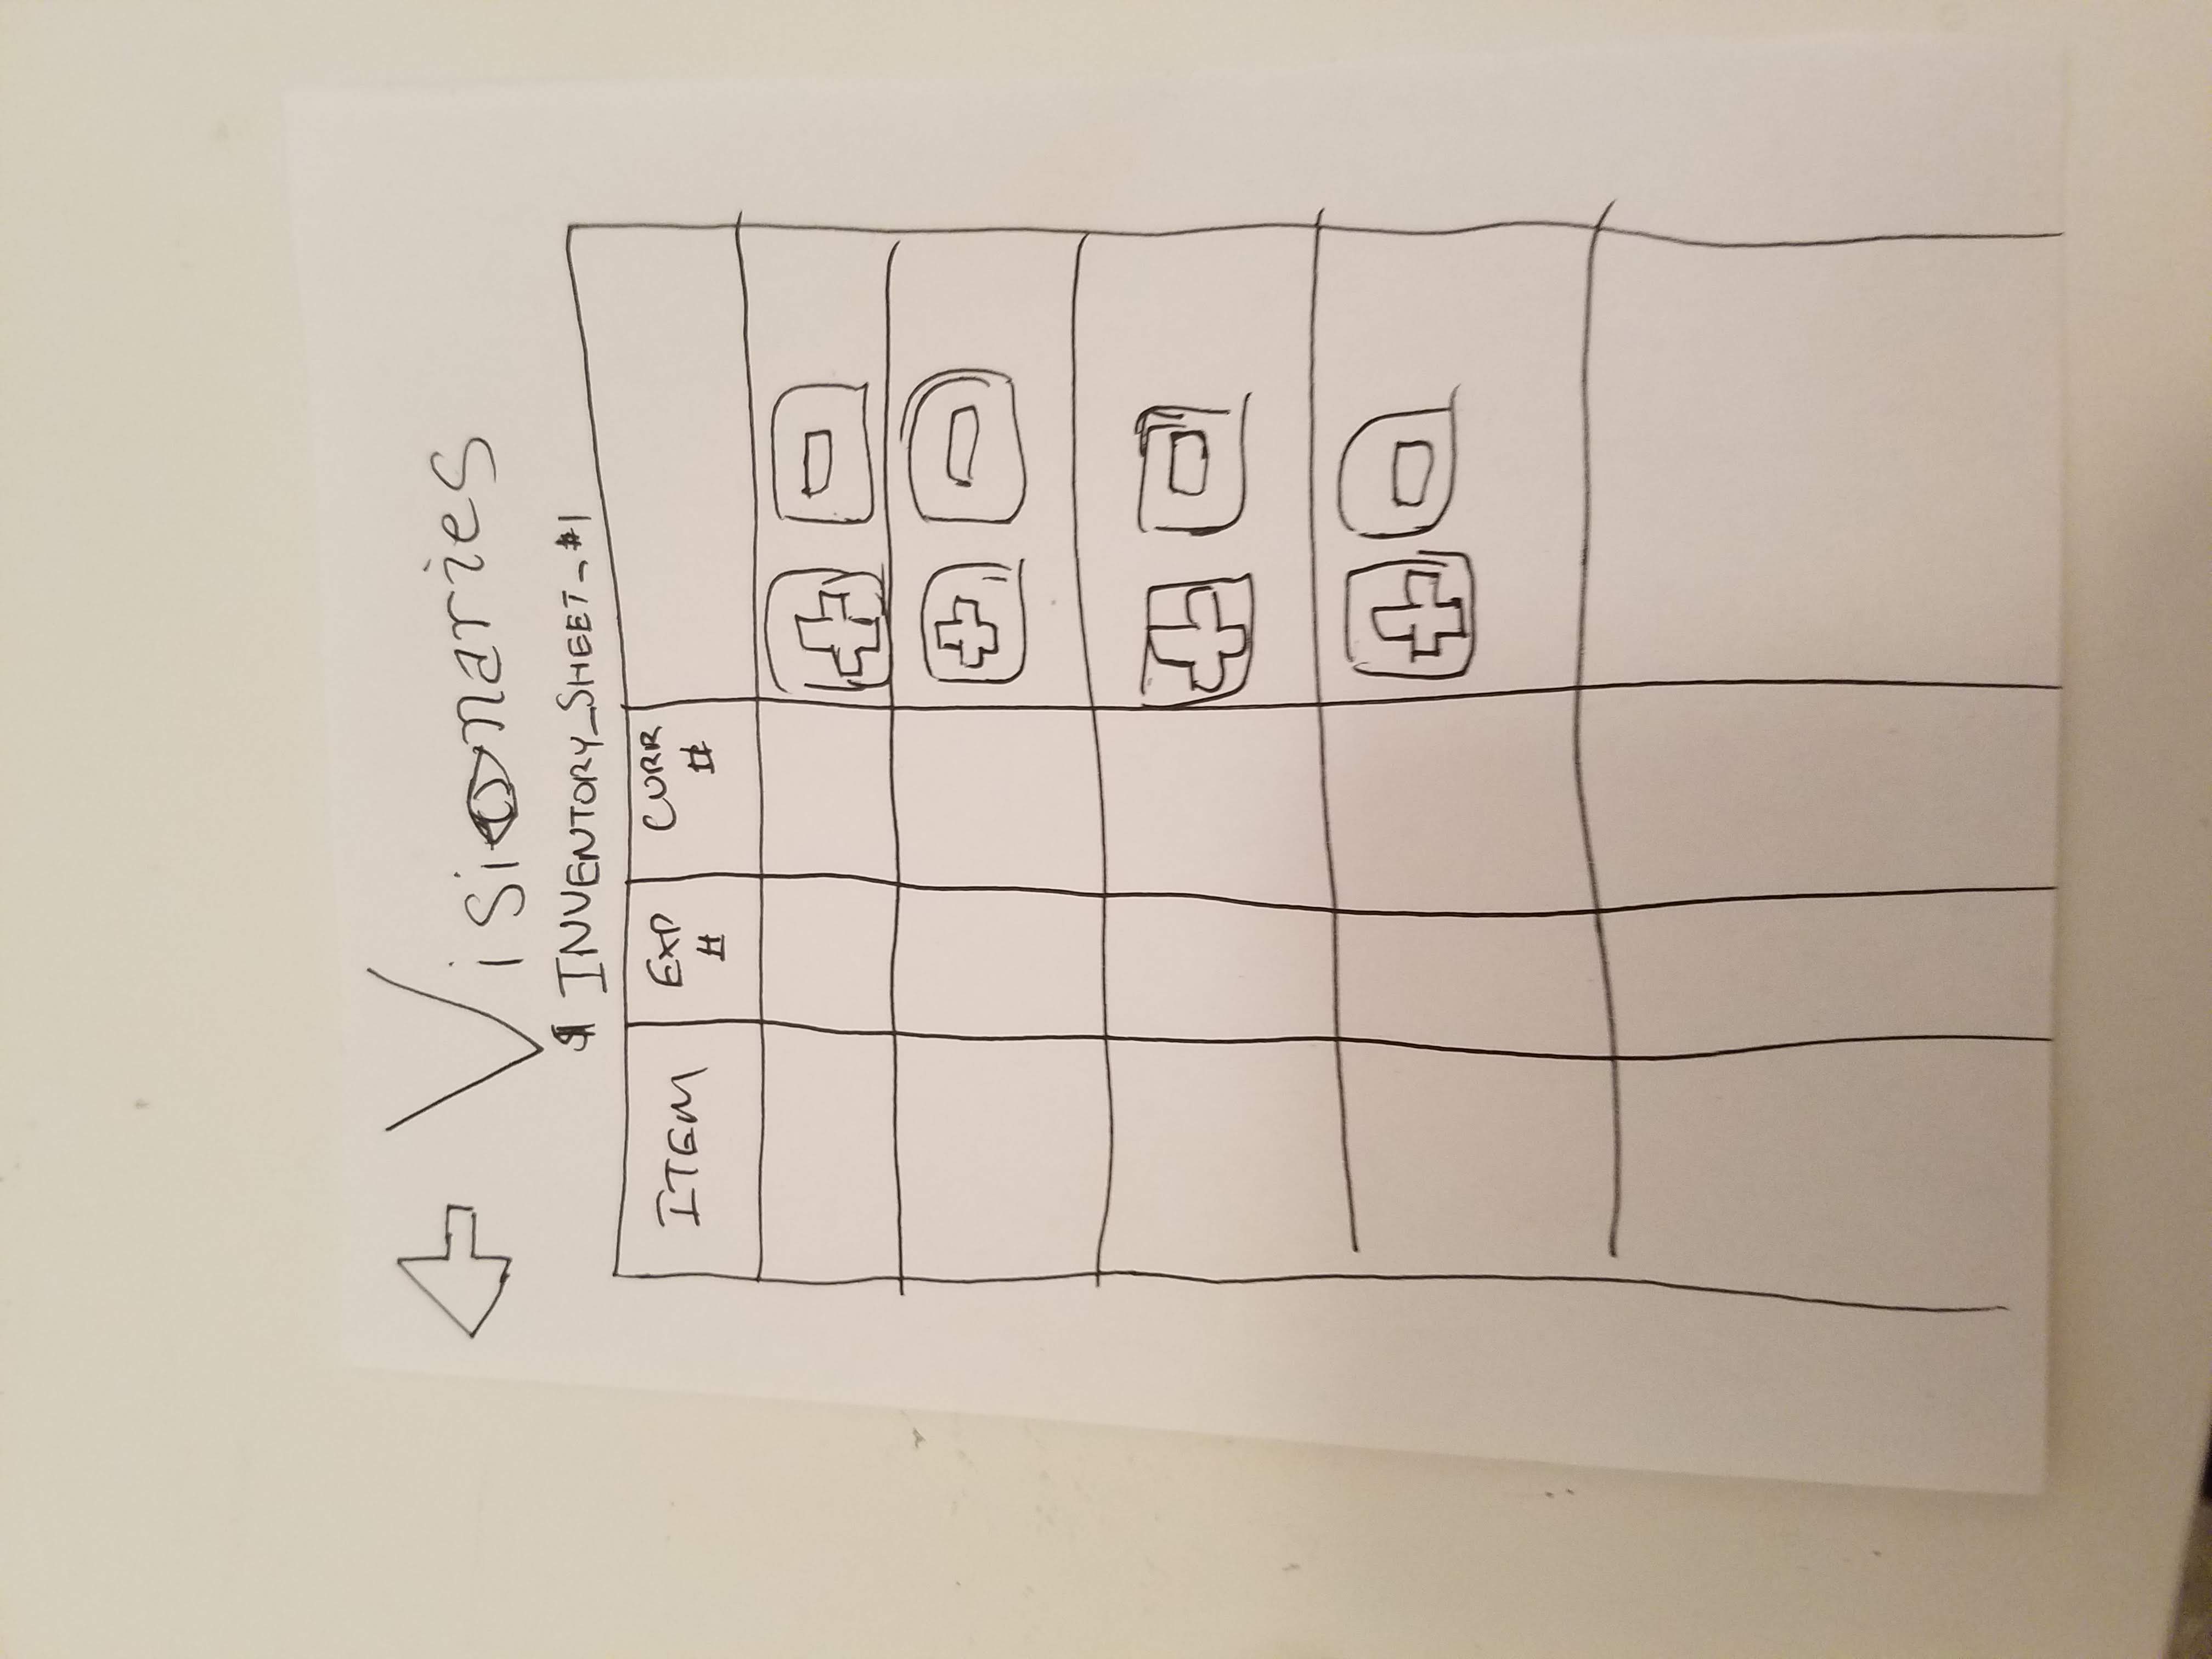 Visionaries
$ INVENTORY_SHEET_#1
ITEM
EXP
#
CURR
#